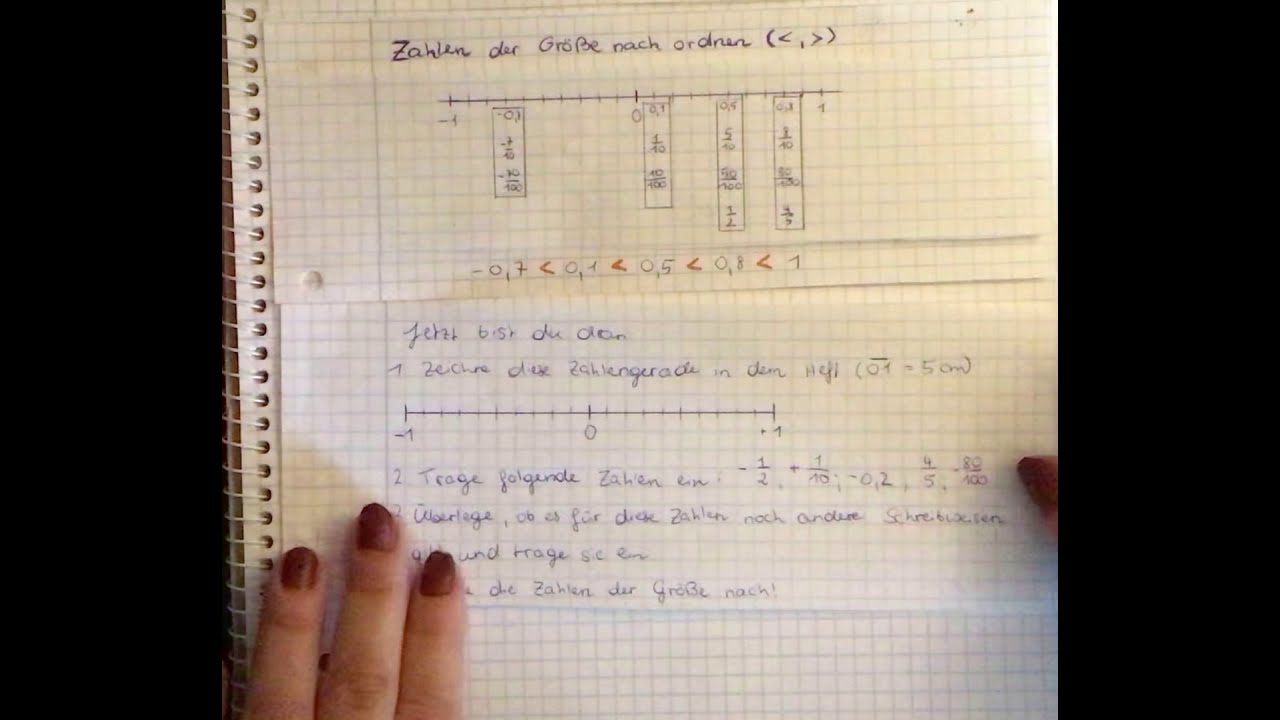 Zahlen der Größe nach ordnen (<,>)
-1 0 1
-0,7 0,1 0,5 0,8
-7/10 1/10 5/10 8/10
-70/100 10/100 50/100 80/100
1/2 4/5
-0,7 < 0,1 < 0,5 < 0,8 < 1
Jetzt bist du dran
1 Zeichne diese Zahlengerade in dein Heft (01 = 5 cm)
-1 0 +1
2 Trage folgende Zahlen ein: -1/2, +1/10; -0,2, 4/5, -80/100
Überlege, ob es für diese Zahlen noch andere Schreibweisen
und trage sie ein
die Zahlen der Größe nach!